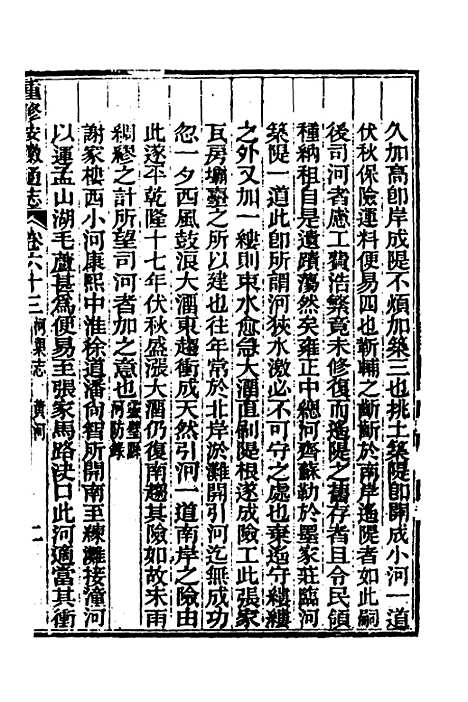 久加高卽岸成隄不煩加築三也挑土築隄卽開成小河一道
伏秋保險運料便易四也靳輔之斷斷於南岸遙隄者如此嗣
後司河者慮工費浩繁竟未修復而遙隄之舊存者且令民領
種納租自是遺蹟蕩然矣雍正中總河齊蘇勒於墨家莊臨河
築隄一道此卽所謂河狹水激必不可守之處也棄遙守縷縷
之外又加一縷則束水愈急大溜直剝隄根遂成險工此張家
瓦房壩臺之所以建也往年常於北岸淤灘開引河迄無成功
忽一夕西風鼓浪大溜東趨衝成天然引河一道南岸之險由
此遂平乾隆十七年伏秋盛漲大溜仍復南趨其險如故未雨
綢繆之計所望司河者加之意也靈璧縣河防錄
謝家樓西小河康熙中淮徐道潘尙智所開南至練灘接潼河
以運孟山湖毛蘆甚爲便易至張家馬路決口此河適當其衝
重修安徽通志 卷六十三 河渠志 黃河 二